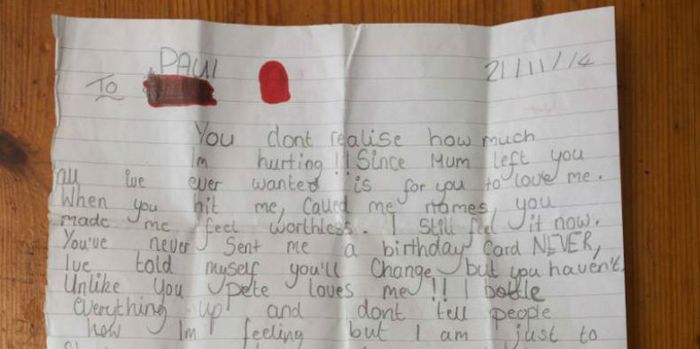 PAUl
To
21/11/14
You dont realise how much
Im hurting!! Since Mum left you
all ive ever wanted is for you to love me.
When you hit me, Called me names, you
made me feel worthless. I Still feel it now.
You've never Sent me a birthday Card NEVER,
Ive told myself you'll Change but you haven't.
Unlike you Pete loves me!! I bottle
everything up and dont tell people
how Im feeling but I am just to